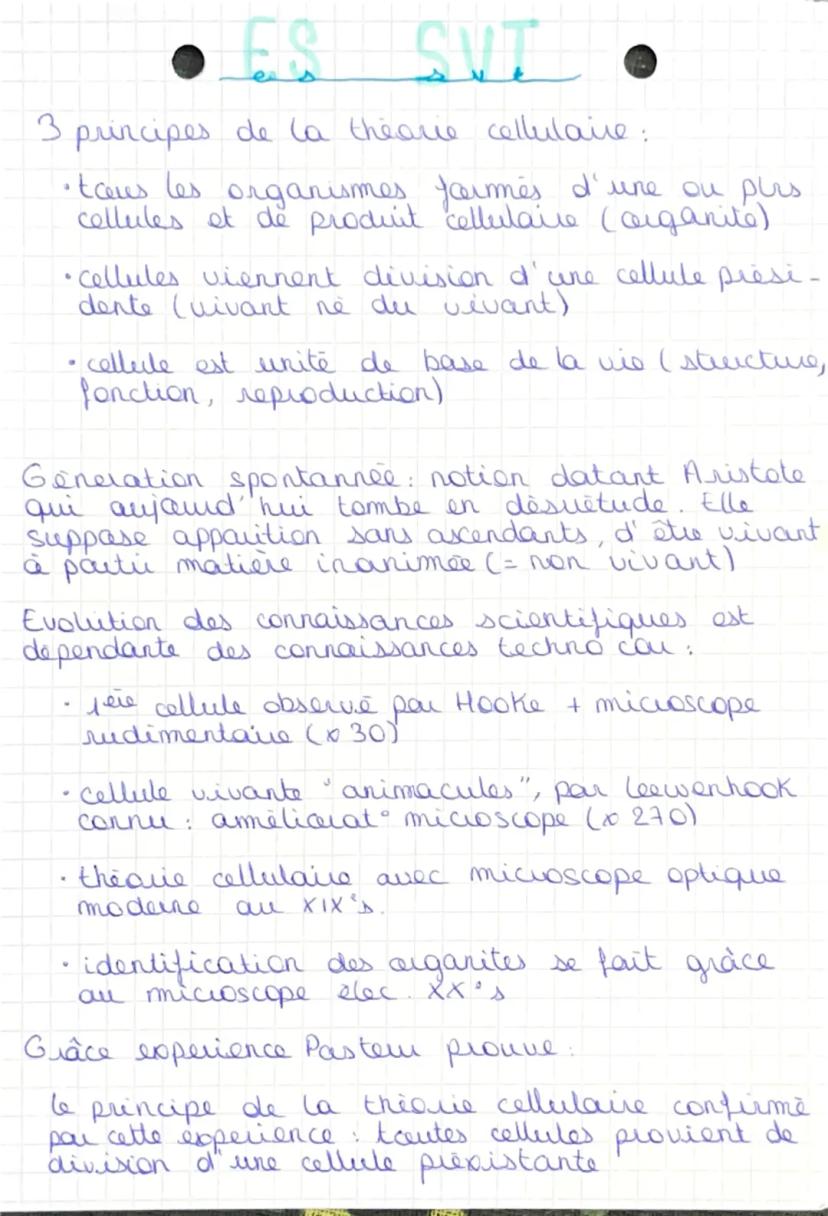 ES SVT
es svt
3 principes de la théorie cellulaire :
• tous les organismes formés d'une ou plrs
cellules et de produit cellulaire (organite)
• cellules viennent division d'une cellule prési-
dente (vivant né du vivant)
• cellule est unité de base de la vie (structure,
fonction, reproduction)
Géneration spontannée : notion datant Aristote
qui aujourd'hui tombe en désuétude. Elle
suppose apparition sans ascendants, d'être vivant
à partir matière inanimée (= non vivant)
Evolution des connaissances scientifiques est
dépendante des connaissances techno car :
• 1ère cellule observé par Hooke + microscope
rudimentaire (x 30)
• cellule vivante "animacules", par Leewenhook
connu : améliorat° microscope (x 270)
• théorie cellulaire avec microscope optique
moderne au XIX°s.
• identification des organites se fait grâce
au microscope élec. XX°s
Grâce experience Pasteur prouve :
le principe de la théorie cellulaire confirmé
par cette experience : toutes cellules provient de
division d'une cellule préxistante